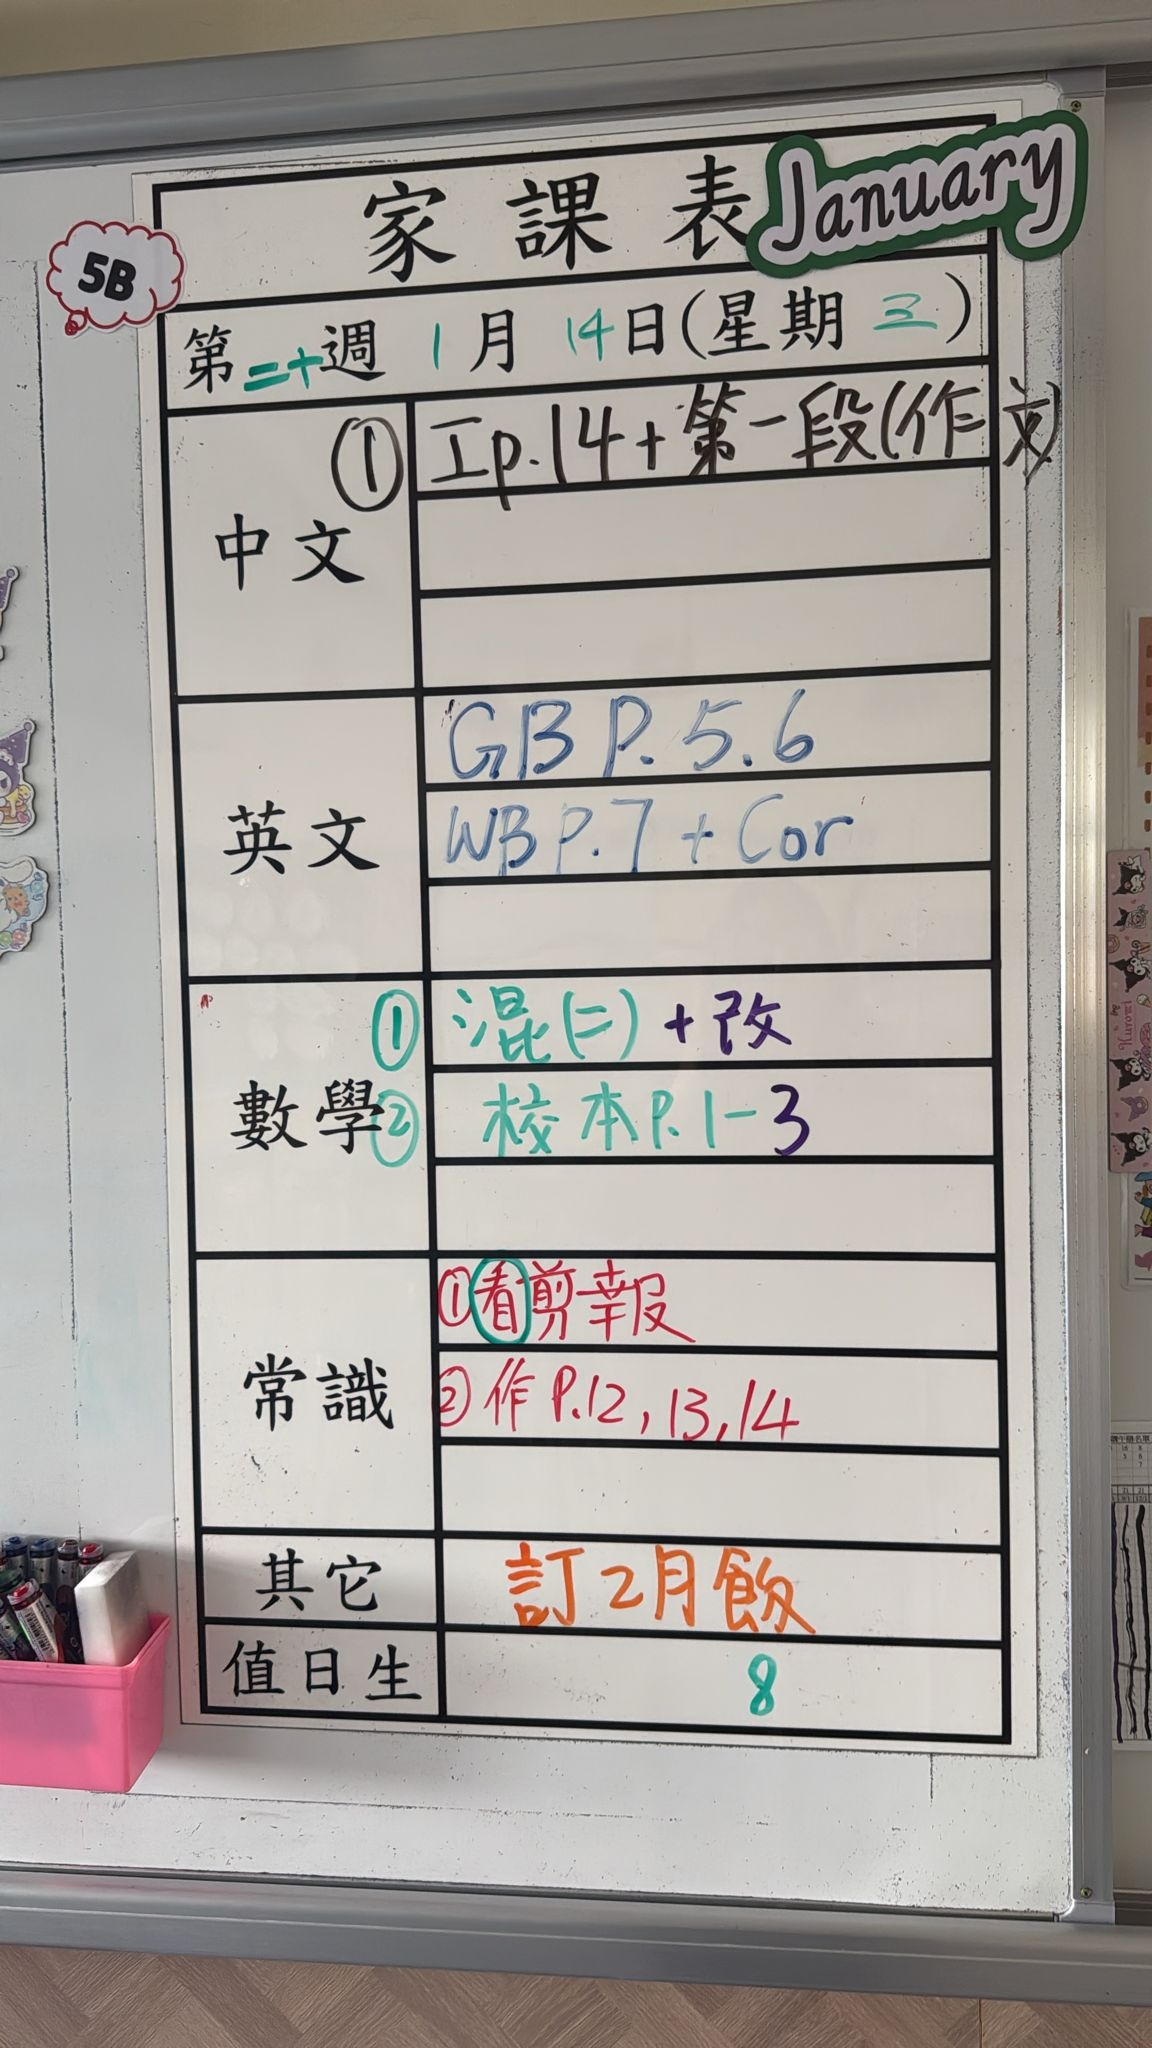 家課表
January
5B
第二十週 1月 14日(星期三)
中文
① 工p.14+第一段(作文)
英文
GB P.5.6
WB P.7 + Cor
數學
① 混(二) + 改
② 校本P.1-3
常識
①看剪報
②作 P.12, 13, 14
其它
訂2月飯
值日生
8